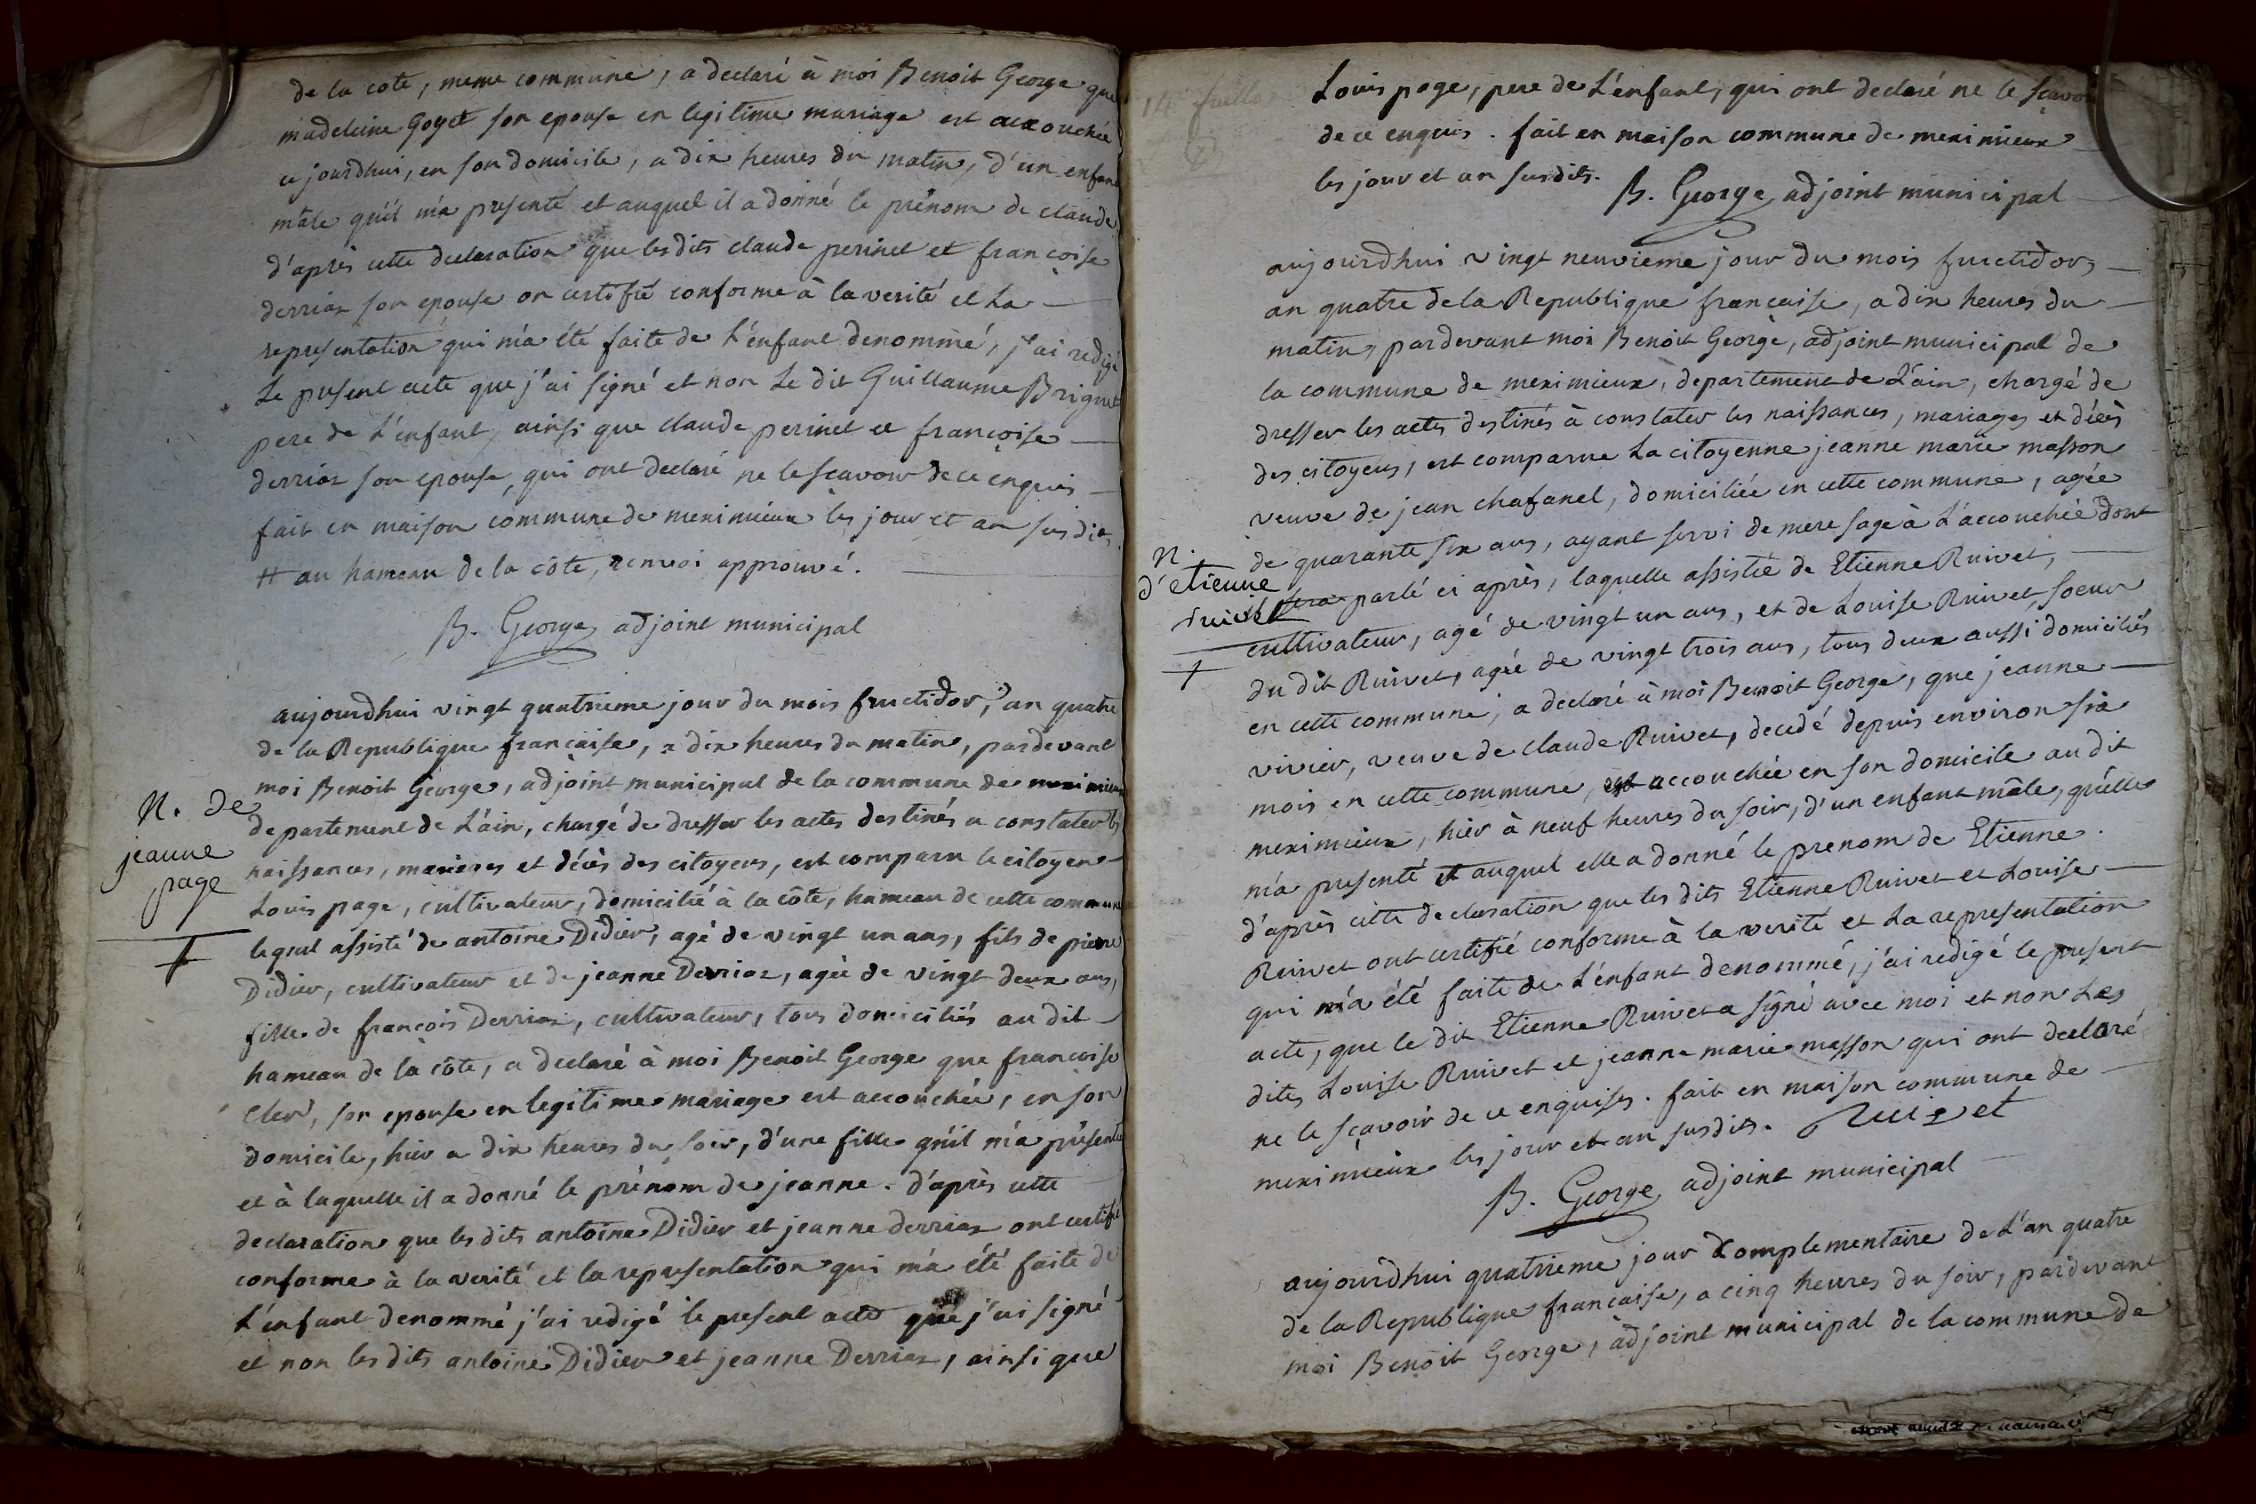 de la cote, meme commune, a declaré à moi Benoit George que
madeleine Goyet son epouse en legitime mariage est accouchée
cejourdhui, en son domicile, a dix heures du matin, d'un enfant
mâle qu'il m'a presenté et auquel il a donné le prénom de claude
d'après cette declaration que les dits claude perinet et francoise
derrias son epouse on certifié conforme à la verité et La
representation qui m'a été faite de L'énfant denommé, j'ai redigé
Le present acte que j'ai signé et non Le dit Guillaume Brignet
pere de L'énfant, ainsi que claude perinet et francoise
derrias son epouse, qui ont declaré ne le scavoir de ce enquis
fait en maison commune de meximieux les jour et an susdits.
# au hameau de la côte, renvoi approuvé.
B. George, adjoint municipal
aujourdhui vingt quatrieme jour du mois fructidor, an quatre
de la Republique francaise, a dix heures du matin, pardevant
moi Benoit George, adjoint municipal de la commune de meximieux
N. de
jeanne
page
departement de L'ain, chargé de dresser les actes destinés a constater les
naissances, mariages et décès des citoyens, est comparu le citoyen
Louis page, cultivateur, domicilié à la côte, hameau de cette commune
lequel assisté de antoine Didier, agé de vingt un ans, fils de pierre
Didier, cultivateur et de jeanne Derrias, agée de vingt deux ans,
fille de francois Derrias, cultivateur, tous domiciliés au dit
hameau de la côte, a declaré à moi Benoit George que francoise
Cler, son epouse en legitime mariage est accouchée, en son
domicile, hier a dix heures du soir, d'une fille qu'il m'a présenté
et à laquelle il a donné le prénom de jeanne. d'après cette
declaration que les dits antoine Didier et jeanne derrias ont certifié
conforme à la verité et la representation qui m'a été faite de
L'énfant denommé j'ai redigé le present acte que j'ai signé
et non les dits antoine Didier et jeanne Derrias, ainsi que
Louis page, pere de L'énfant, qui ont declaré ne le scavoir
de ce enquis. fait en maison commune de meximieux
les jour et an susdits.
B. George, adjoint municipal
aujourdhui vingt neuvieme jour du mois fructidor,
an quatre de la Republique francaise, a dix heures du
matin, pardevant moi Benoit George, adjoint municipal de
la commune de meximieux, departement de L'ain, chargé de
dresser les actes destinés à constater les naissances, mariages et décès
des citoyens, est comparue La citoyenne jeanne marie masson
veuve de jean chafanel, domiciliée en cette commune, agée
de quarante six ans, ayant servi de mere sage à L'accouchée dont
N.
d'etienne
ruivet
sera parlé ci après, laquelle assistée de Etienne Ruivet,
cultivateur, agé de vingt un ans, et de Louise Ruivet, soeur
du dit Ruivet, agée de vingt trois ans, tous deux aussi domiciliés
en cette commune, a declaré à moi Benoit George, que jeanne
vivier, veuve de claude Ruivet, decedé depuis environ six
mois en cette commune, est accouchée en son domicile au dit
meximieux, hier à neuf heures du soir, d'un enfant mâle, qu'elle
m'a presenté et auquel elle a donné le prenom de Etienne.
d'après cette declaration que les dits Etienne Ruivet et Louise
Ruivet ont certifié conforme à la verité et La representation
qui m'a été faite de L'énfant denommé, j'ai redigé le present
acte, que le dit Etienne Ruivet a signé avec moi et non Les
dites Louise Ruivet et jeanne marie masson qui ont declaré
ne le sçavoir de ce enquises. fait en maison commune de
meximieux les jour et an susdits. Ruivet
B. George, adjoint municipal
aujourdhui quatrieme jour Complementaire de L'an quatre
de la Republique francaise, a cinq heures du soir, pardevant
moi Benoit George, adjoint municipal de la commune de